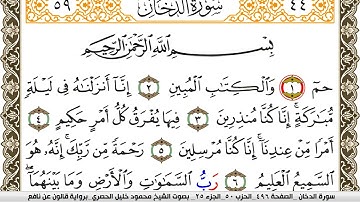 ٥٩ سورة الدخان ٤٤
بِسْمِ اللَّهِ الرَّحْمَٰنِ الرَّحِيمِ
حمٓ ١ وَالْكِتَابِ الْمُبِينِ ٢ إِنَّا أَنزَلْنَاهُ فِي لَيْلَةٍ
مُّبَارَكَةٍ إِنَّا كُنَّا مُنذِرِينَ ٣ فِيهَا يُفْرَقُ كُلُّ أَمْرٍ حَكِيمٍ ٤
أَمْرًا مِّنْ عِندِنَا إِنَّا كُنَّا مُرْسِلِينَ ٥ رَحْمَةً مِّن رَّبِّكَ إِنَّهُ هُوَ
السَّمِيعُ الْعَلِيمُ ٦ رَبُّ السَّمَاوَاتِ وَالْأَرْضِ وَمَا بَيْنَهُمَا
سورة الدخان الصفحة ٤٩٦ الحزب ٥٠ الجزء ٢٥ بصوت الشيخ محمود خليل الحصري برواية قالون عن نافع